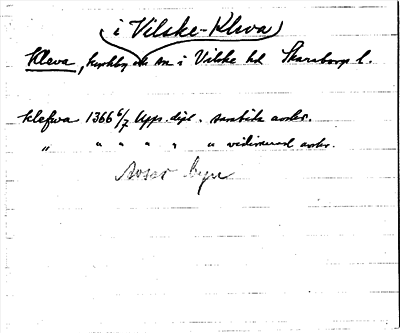 (i Vilske-Kleva)
Kleva, kyrkby och sn i Vilske hd Skaraborgs l.
Klefwa 1366 6/7 Upps. dipl. samtida avskr.
" " " " " vidimerad avskr.